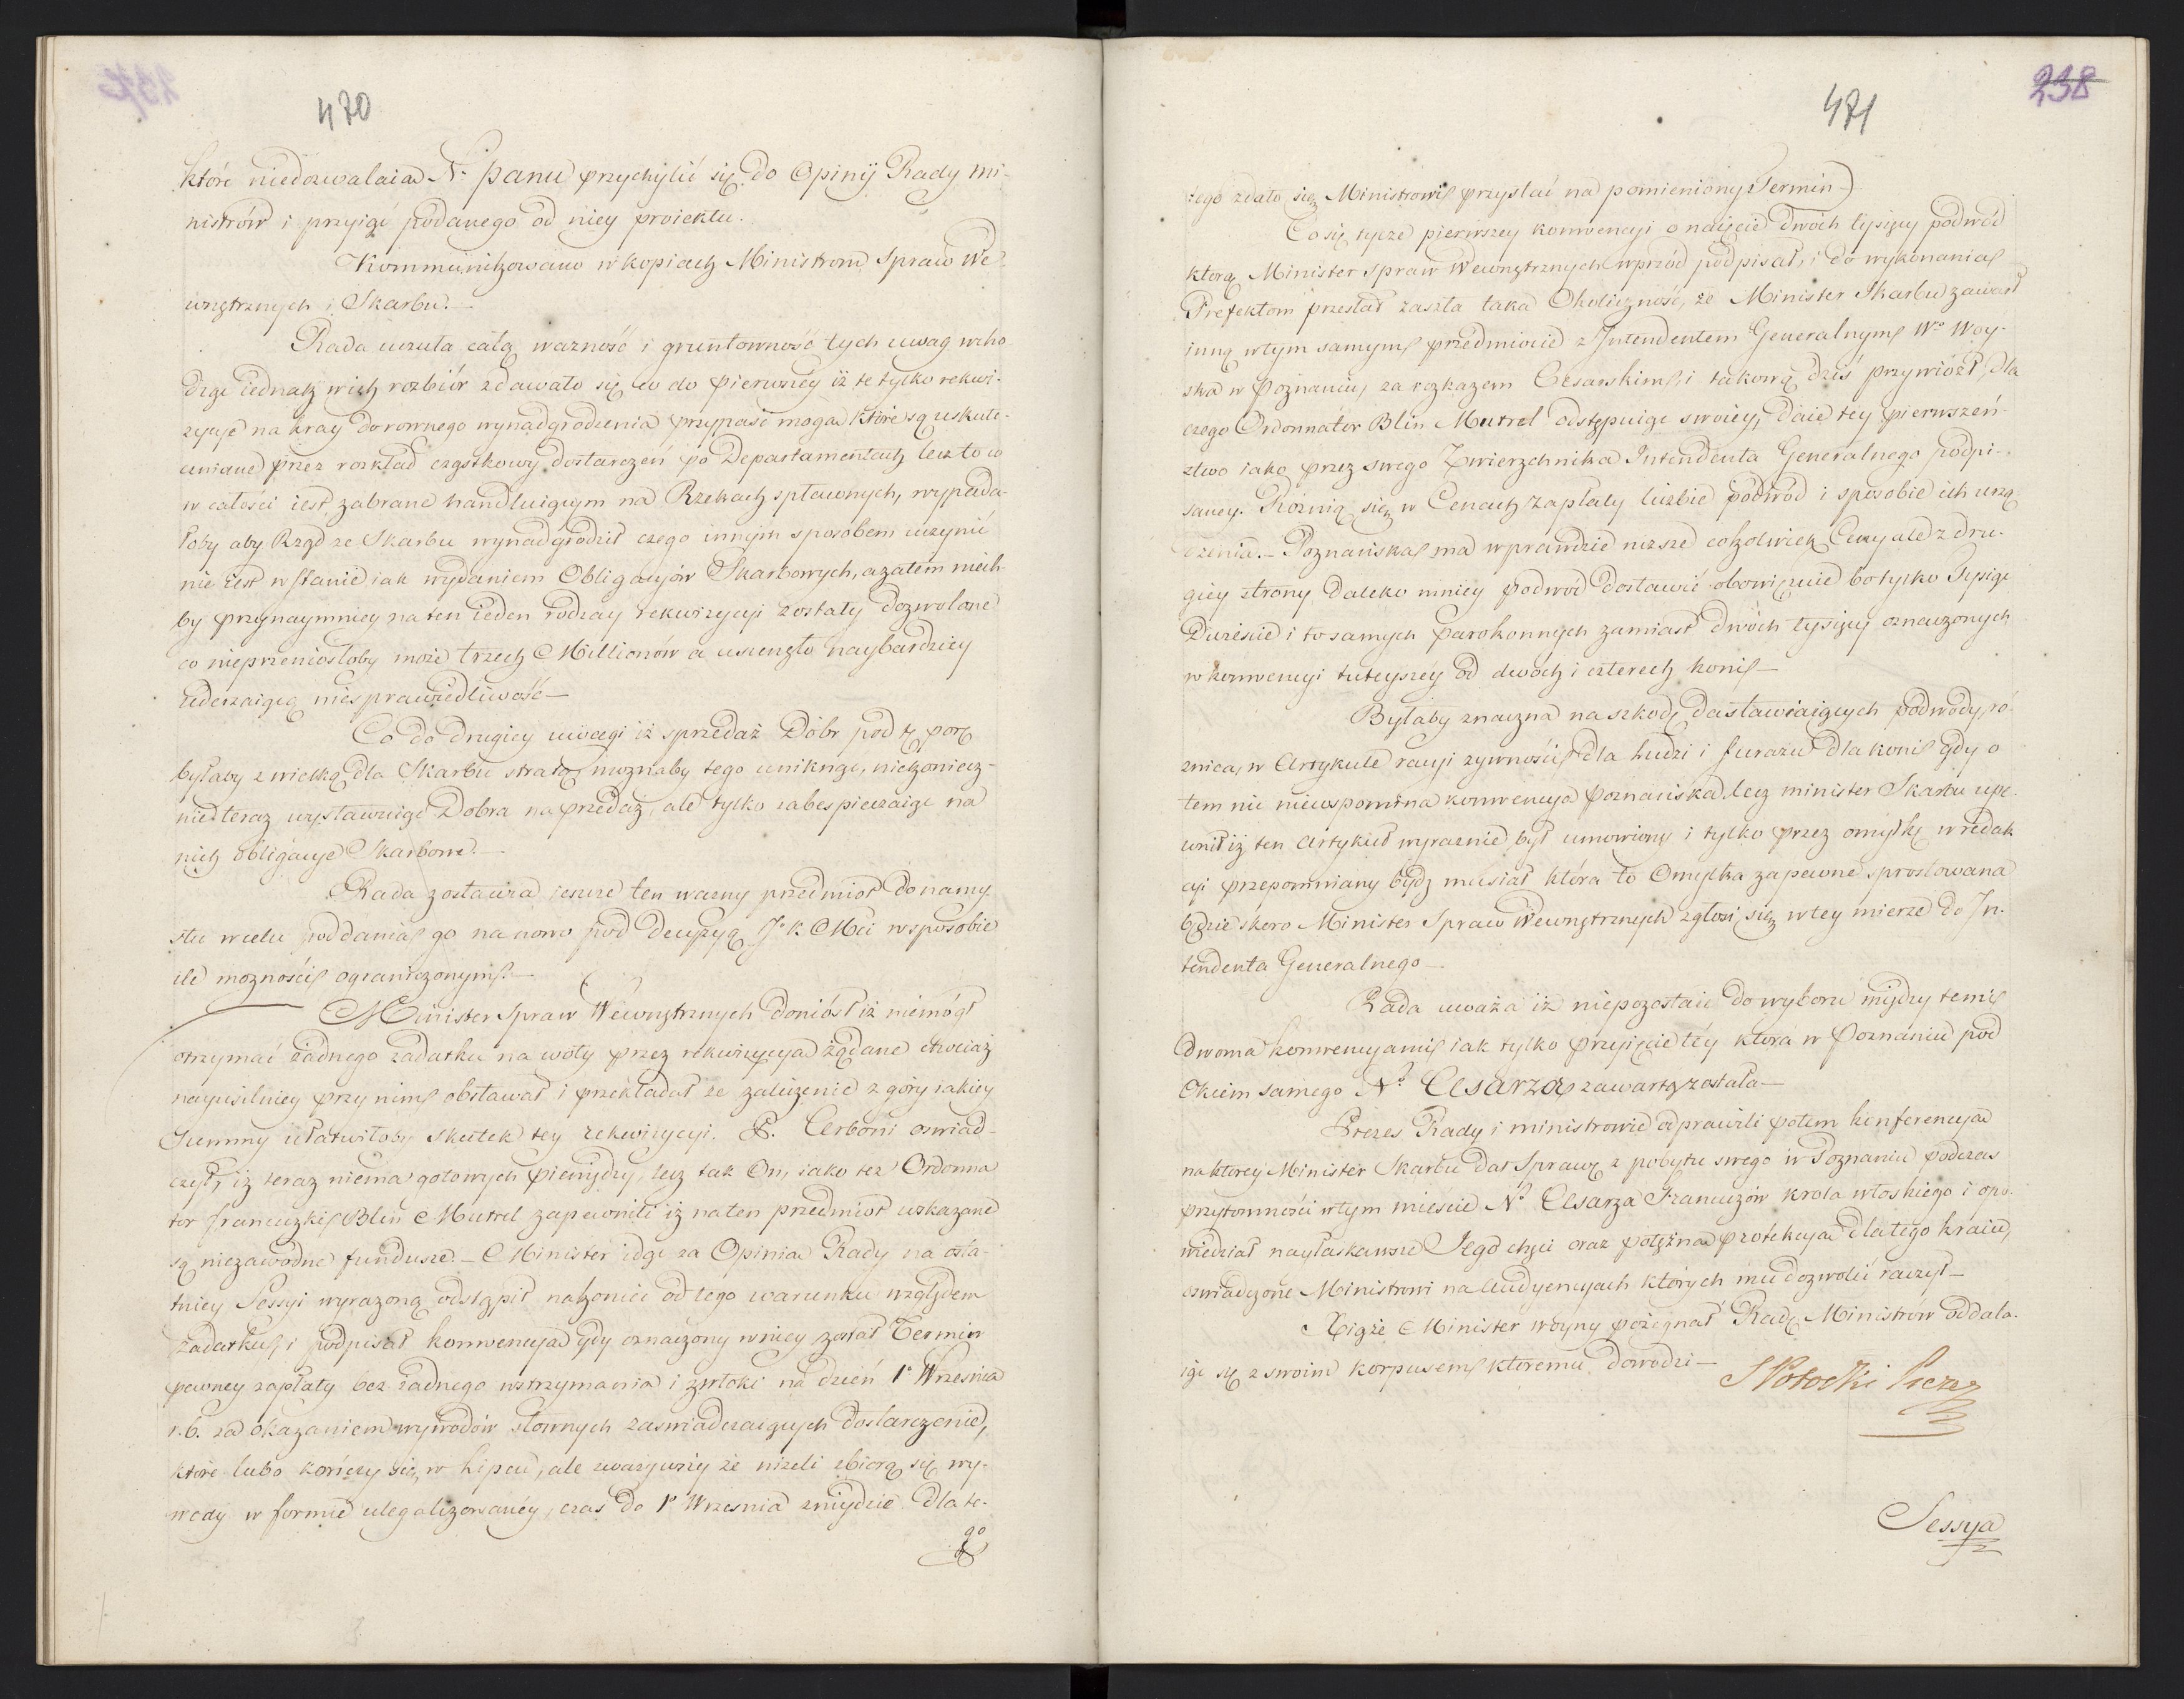 470
które niedozwalaią N. Panu przychylić się do Opinij Rady Mi-
nistrów i przyiąć podanego od niey proiektu.
Kommunikowano w kopiach Ministrom Spraw We-
wnętrznych i Skarbu.—
Rada uczuła całą wazność i gruntowność tych uwag wcho
dząc iednak w ich rozbiór zdawało się co do pierwszey iż te tylko rekwi-
zycye na kray do rownego wynadgrodzenia przypaść mogą które są uskute-
cznione przez rozkład cząstkowy dostarczeń po Departamentach lecz to co
w całości iest zabrane handluiącym na Rzekach spławnych, wypada-
łoby aby Rząd ze Skarbu wynadgrodził czego innym sposobem uczynić
nie iest w stanie iak wydaniem Obligacyów Skarbowych, a zatem niech-
by przynaymniey na ten ieden rodzay rekwizycyi zostały dozwolone
co nieprzeniosłoby może trzech Millionów a usunęło naybardziey
uderzaiącą niesprawiedliwość—
Co do drugiey uwagi iż sprzedaż Dóbr pod tę porę
byłaby z wielką dla Skarbu stratą, możnaby tego uniknąć, niekoniecz-
nie teraz wystawuiąc Dobra na przedaż, ale tylko zabespieczaiąc na
nich obligacye Skarbowe.—
Rada zostawia ieszcze ten ważny przedmiot do namy-
słu w celu poddania go na nowo pod decyzyą J. K. Mci w sposobie
ile możności ograniczonym.—
Minister Spraw Wewnętrznych doniósł iż niemógł
otrzymać żadnego zadatku na woły przez rekwizycya żądane chociaż
nayusilniey przy nim obstawał i przekładał że zaliczenie z góry iakiey
Summy ułatwiłoby skutek tey rekwizycyi. P. Cerboni oswiad-
czył, iż teraz niema gotowych pieniędzy, lecz tak On, iako też Ordonna
tor francuzki Blin Mutrel zapewnili iż na ten przedmiot wskazane
są niezawodne fundusze.— Minister idąc za Opinią Rady na osta-
tniey Sessyi wyrażoną odstąpił nakoniec od tego warunku względem
zadatku, i podpisał konwencyą gdy oznaczony w niey został Termin
pewney zapłaty bez żadnego wstrzymania i zwłoki na dzień 1º Września
r. b. za okazaniem wywodów słownych zaswiadczaiących dostarczenie,
które lubo kończy się w Lipcu, ale zważywszy że nizeli zbiorą się wy-
wody w formie ulegalizowaney, czas do 1º Wrzesnia zniydzie dla te-
go
471
238
tego zdało się Ministrowi przystać na pomieniony Termin—
Co się tycze pierwszey konwencyi o naięcie dwóch tysięcy podwód
którą Minister Spraw Wewnętrznych wprzód podpisał, i do wykonania
Prefektom przesłał zaszła taka Okoliczność, że Minister Skarbu zawarł
inną w tym samym przedmiocie z Intendentem Generalnym Wº Woy-
ska w Poznaniu, za rozkazem Cesarskim, i takową dziś przywiózł, dla
czego Ordonnator Blin Mutrel odstępuiąc swoiey, daie tey pierwszeń-
stwo iako przez swego Zwierzchnika Intendenta Generalnego podpi-
saney. Różnią się w Cenach zapłaty liczbie podwód i sposobie ich urzą
dzenia.— Poznańska ma wprawdzie nizsze cokolwiek Ceny ale z dru-
giey strony daleko mniey podwód dostawić obowiązuie bo tylko Tysiąc
Dwieście i to samych parokonnych zamiast dwóch tysięcy oznaczonych
w konwencyi tuteyszey od dwoch i czterech koni—
Byłaby znaczna na szkodę dostawiaiących podwody ró-
znica, w Artykule racyi zywności dla ludzi i furazu dla koni gdy o
tem nic niewspomina konwencya poznańska lecz minister Skarbu upe-
wnił iż ten Artykuł wyraznie był umowiony i tylko przez omyłkę w redak
cyi przepomniany bydź musiał która to Omyłka zapewne sprostowana
będzie skoro Minister Spraw Wewnętrznych zgłosi się w tey mierze do In-
tendenta Generalnego—
Rada uważa iż niepozostaie do wyboru między temi
dwoma konwencyami iak tylko przyięcie téy która w Poznaniu pod
Okiem samego Nº Cesarza zawartą została—
Prezes Rady i ministrowie odprawili potem konferencya
na ktorey Minister Skarbu dał Sprawę z pobytu swego w Poznaniu podczas
przytomności w tym mieście Nº Cesarza Francuzów krola włoskiego i opo-
wiedział nayłaskawsze Jego chęci oraz potężną protekcyą dla tego kraiu,
oswiadczone Ministrowi na Audyencyach których mu dozwolić raczył—
Xiąże Minister woyny pożegnał Radę Ministrow oddala-
iąc się z swoim korpusem któremu dowodzi—
S Potocki Prezes
Sessya